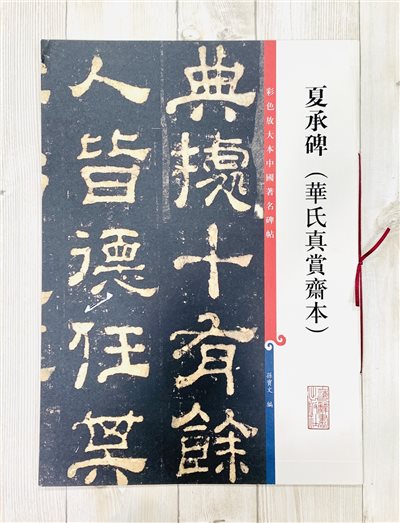 夏承碑（華氏真賞齋本）
彩色放大本中國著名碑帖
孫寶文 編
典據十有餘
人皆德任其